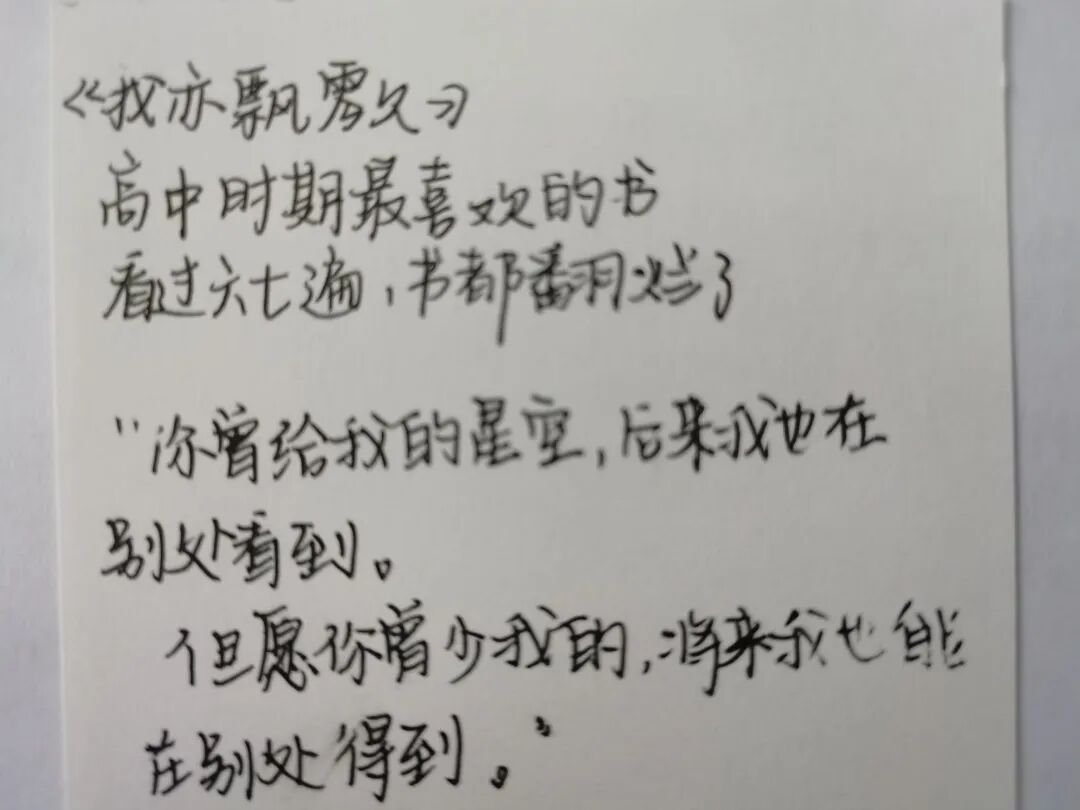 《我亦飘零久》
高中时期最喜欢的书
看过六七遍，书都翻烂了
“你曾给我的星空，后来我也在
别处看到。
但愿你曾少我的，将来我也能
在别处得到。”